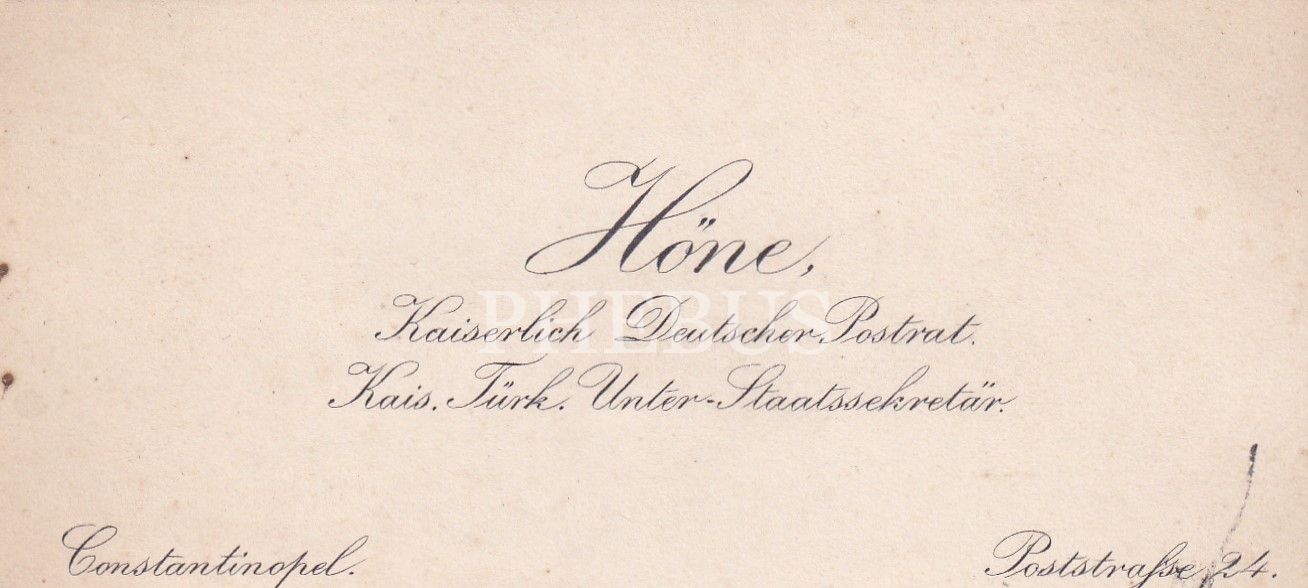 Höne,
Kaiserlich Deutscher Postrat.
PHEBUS
Kais. Türk. Unter-Staatssekretär.
Constantinopel.
Poststraſse 24.